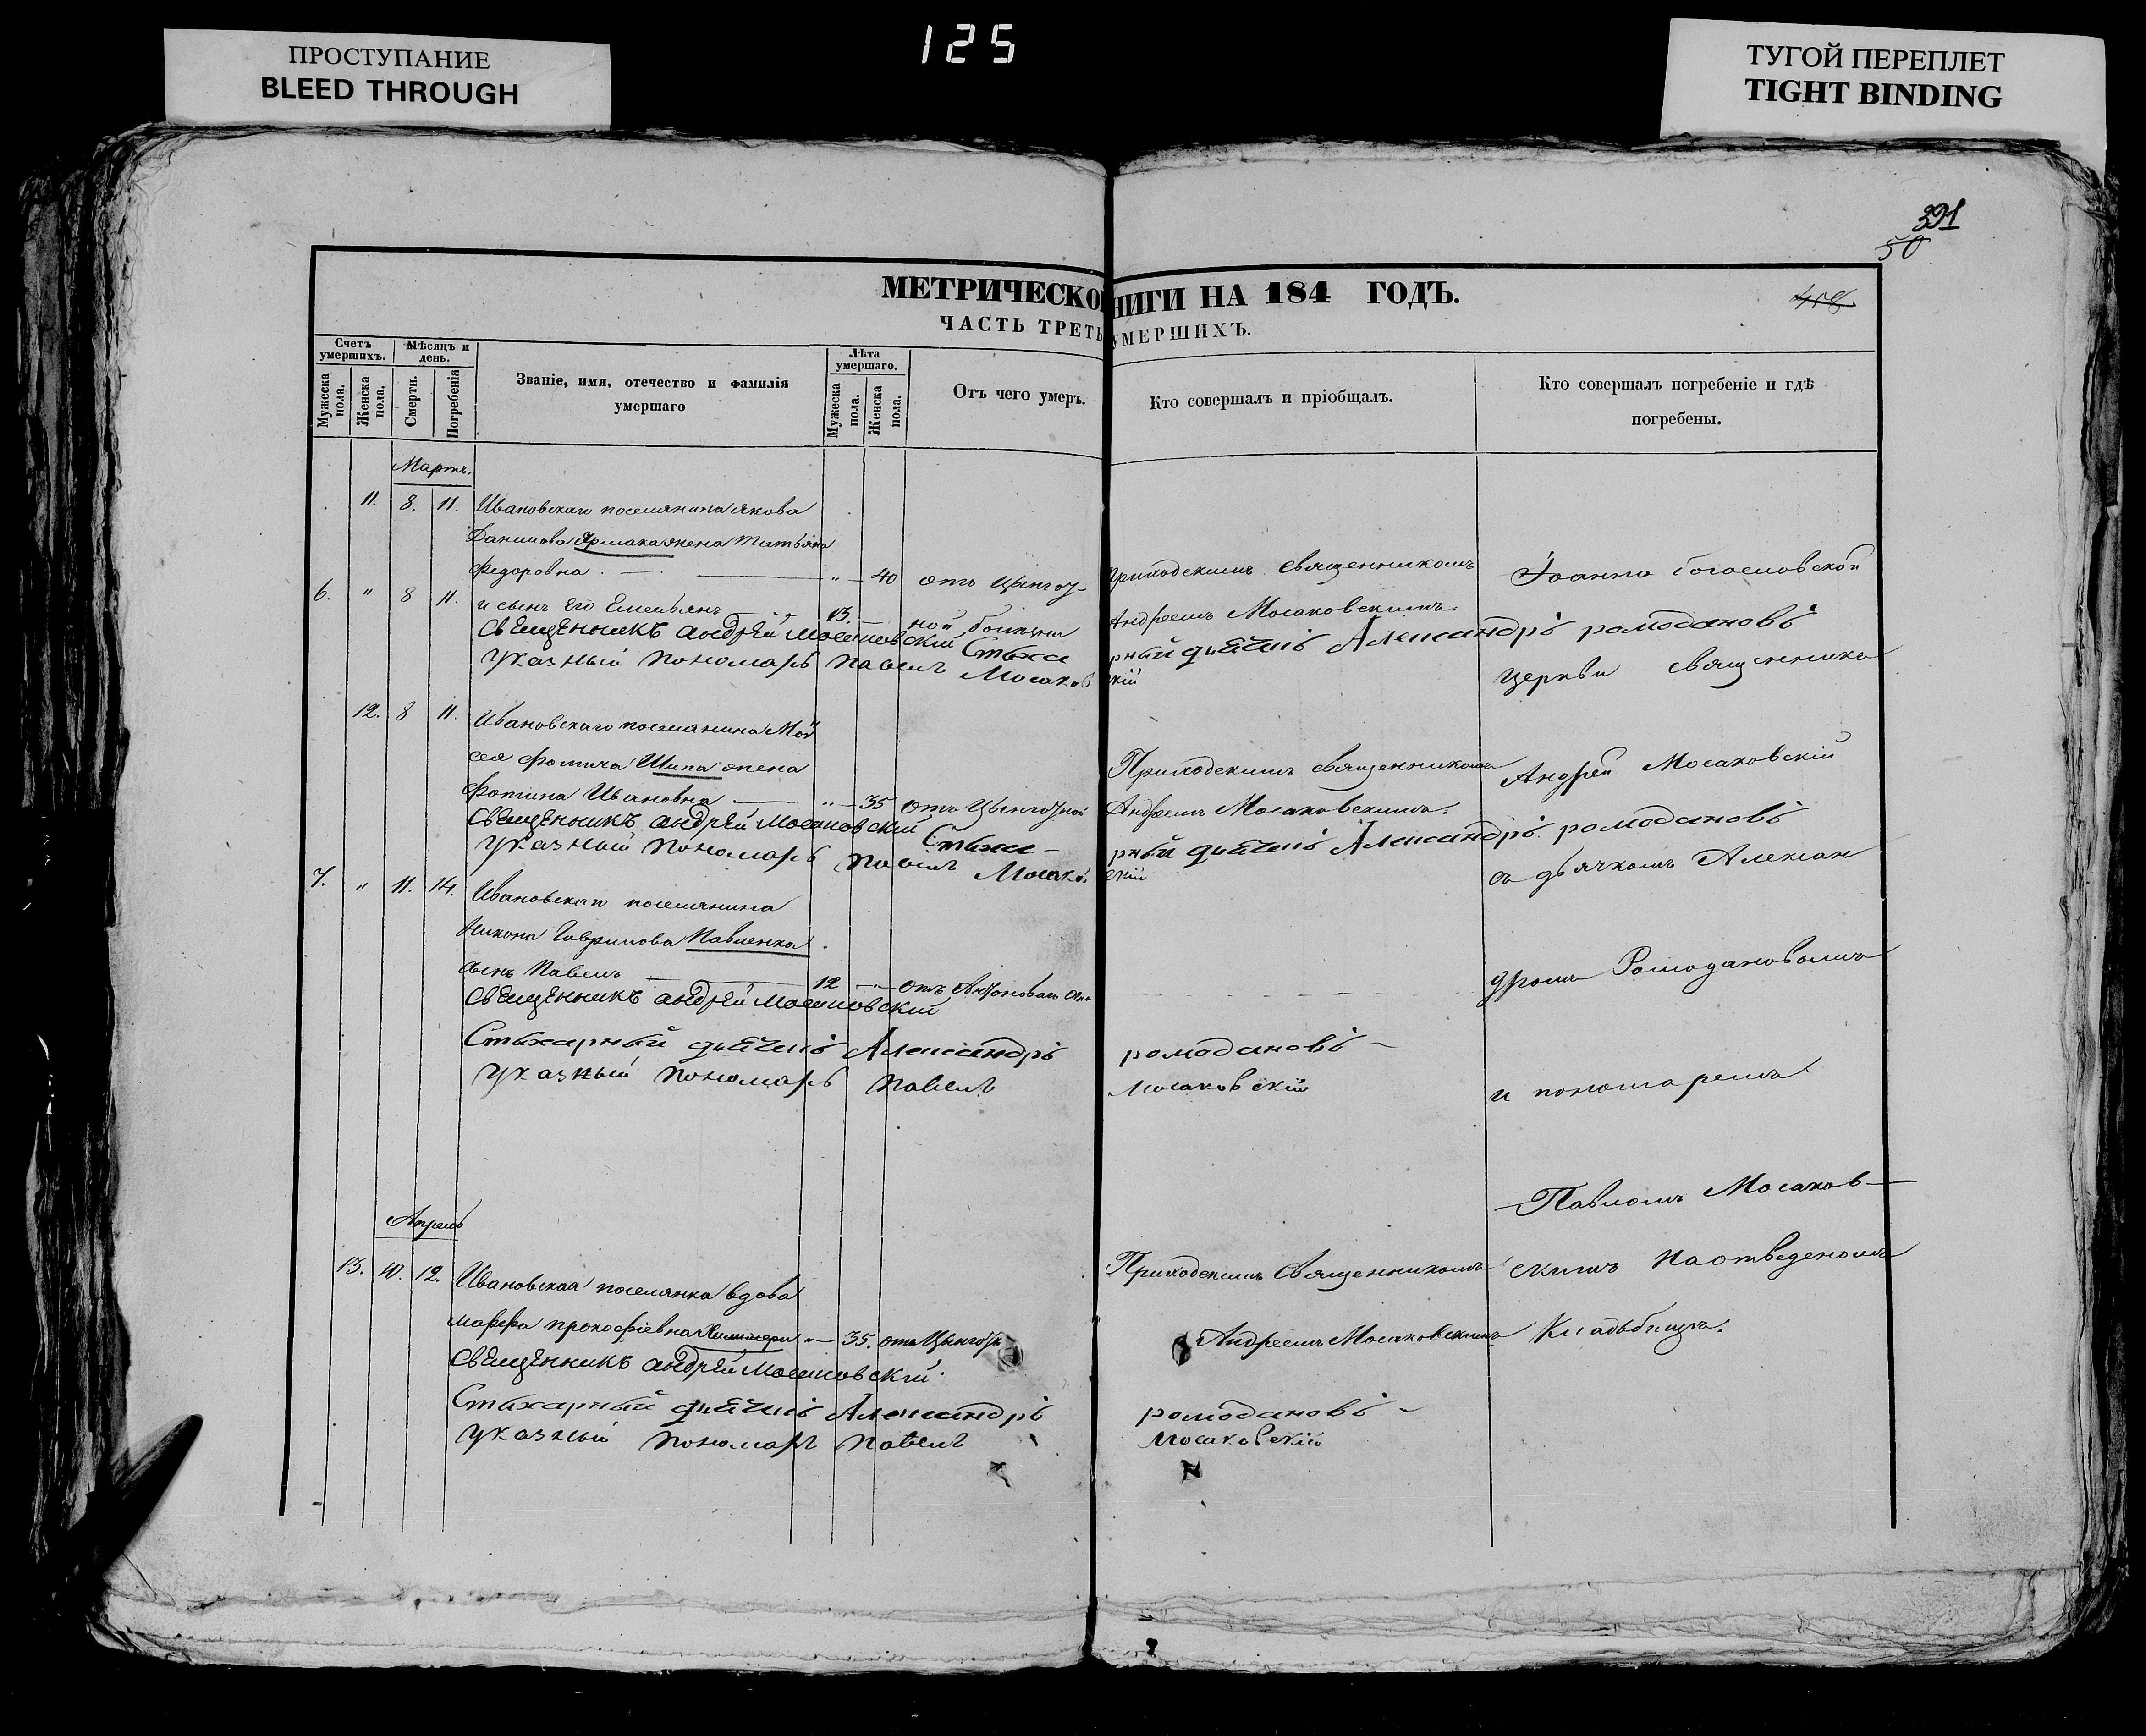 ПРОСТУПАНИЕ
BLEED THROUGH
125
ТУГОЙ ПЕРЕПЛЕТ
TIGHT BINDING
391
50
МЕТРИЧЕСКО НИГИ НА 184 ГОДЪ.
ЧАСТЬ ТРЕТЬ УМЕРШИХЪ.
Счетъ умершихъ.
Мужеска пола.
Женска пола.
Мѣсяцъ и день.
Смерти.
Погребенія
Званіе, имя, отечество и фамилія
умершаго
Лѣта умершаго.
Мужеска пола.
Женска пола.
Отъ чего умеръ.
Кто совершалъ и пріобщалъ.
Кто совершалъ погребеніе и гдѣ
погребены.
Мартъ.
11. 8. 11. Ивановскаго поселянина Якова
Данилова Ярмака жена Татьяна
Федоровна. " 40 отъ Цынгоу-
6. " 8 11. и сынъ его Емельянъ 13. ной болезни
Приходскимъ священникомъ
Андреемъ Мосаковскимъ.
Священникъ андрей мосаковскій Стиха рный дьячекъ Александръ ромодановъ
указный пономарь павелъ Мосаков скій
12. 8 11. Ивановскаго поселянина Мой
сея Фомича Шипа жена
Фотина Ивановна " 35 отъ Цынготной
Приходскимъ священникомъ
Андреемъ Мосаковскимъ.
Священникъ андрей мосаковскій Стиха- рный дьячекъ Александръ ромодановъ
указный пономарь павелъ Мосаков скій
7. " 11. 14. Ивановскаго поселянина
Никона Гаврилова Павленка
сынъ Павелъ 12 " отъ
Священникъ андрей мосаковскій
Стихарный дьячекъ Александръ ромодановъ
указный пономарь павелъ мосаковскій
Апрель
13. 10. 12. Ивановская поселянка вдова
марфа прокофіевна " 35. отъ Цынготн
Приходскимъ Священникомъ
Андреемъ Мосаковскимъ
Священникъ андрей мосаковскій
Стихарный дьячекъ Александръ ромодановъ
указный пономарь павелъ мосаковскій
Іоанно Богословской
церкви священникъ
Андрей Мосаковскій
съ дьячкомъ Алексан
дромъ Ромодановымъ
и пономаремъ
Павломъ Мосаков
скимъ на отведеномъ
Кладьбищѣ.